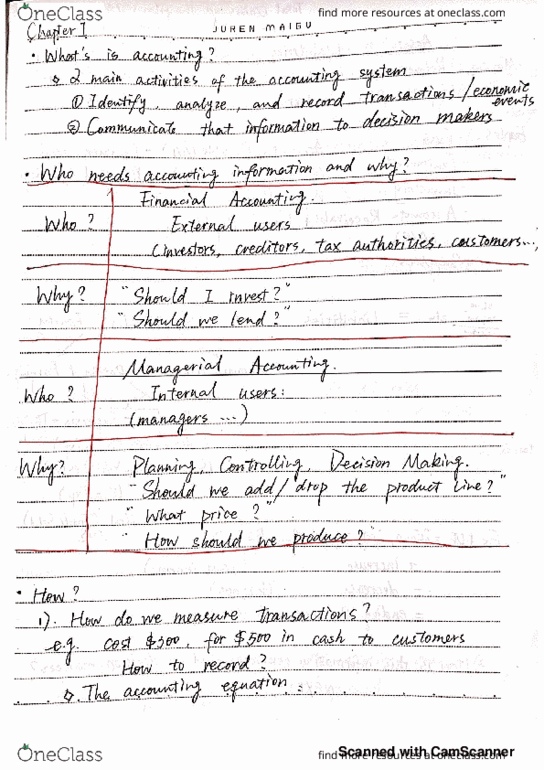 OneClass find more resources at oneclass.com
Chapter 1 JUREN MAIGU
• What's is accounting?
◊ 2 main activities of the accounting system
① Identify, analyze, and record transactions / economic events
② Communicate that information to decision makers
• Who needs accounting information and why?
Financial Accounting.
Who? External users
(investors, creditors, tax authorities, customers...,
Why? "Should I invest?"
"Should we lend?"
Managerial Accounting.
Who? Internal users:
(managers ...)
Why? Planning, Controlling, Decision Making.
"Should we add/drop the product line?"
"What price?"
"How should we produce?"
• How?
1). How do we measure transactions?
e.g. cost $300, for $500 in cash to customers
How to record?
◊. The accounting equation:
OneClass find more resources at oneclass.com
Scanned with CamScanner